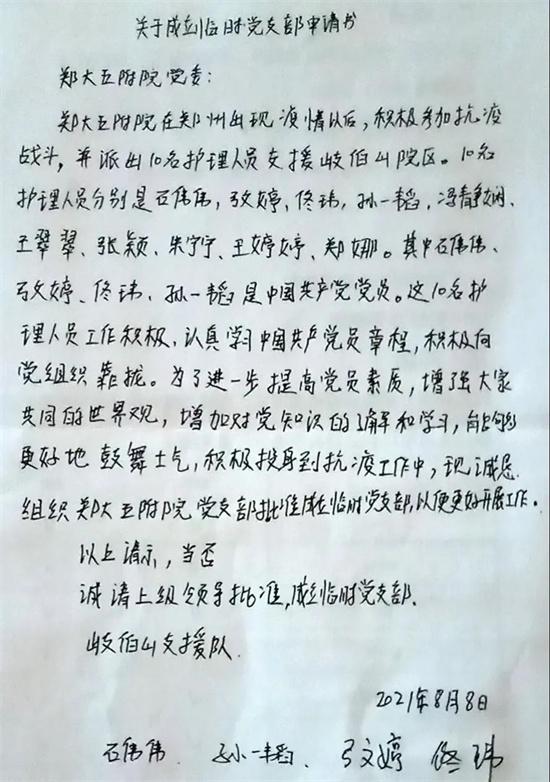 关于成立临时党支部申请书
郑大五附院党委：
郑大五附院在郑州出现疫情以后，积极参加抗疫
战斗，并派出10名护理人员支援岐伯山院区。10名
护理人员分别是石伟伟，弓文婷、佟玮，孙一韬，冯静娴、
王翠翠、张颖、朱宁宁、王婷婷、郑娜。其中石伟伟、
弓文婷、佟玮、孙一韬是中国共产党党员。这10名护
理人员工作积极、认真学习中国共产党员章程，积极向
党组织靠拢。为了进一步提高党员素质，增强大家
共同的世界观，增加对党知识的了解和学习，能够
更好地鼓舞士气，积极投身到抗疫工作中，现诚恳
组织郑大五附院党支部批准成立临时党支部，以便更好开展工作。
以上请示，当否
诚请上级领导批准，成立临时党支部.
岐伯山支援队.
2021年8月8日
石伟伟. 孙一韬、弓文婷 佟玮